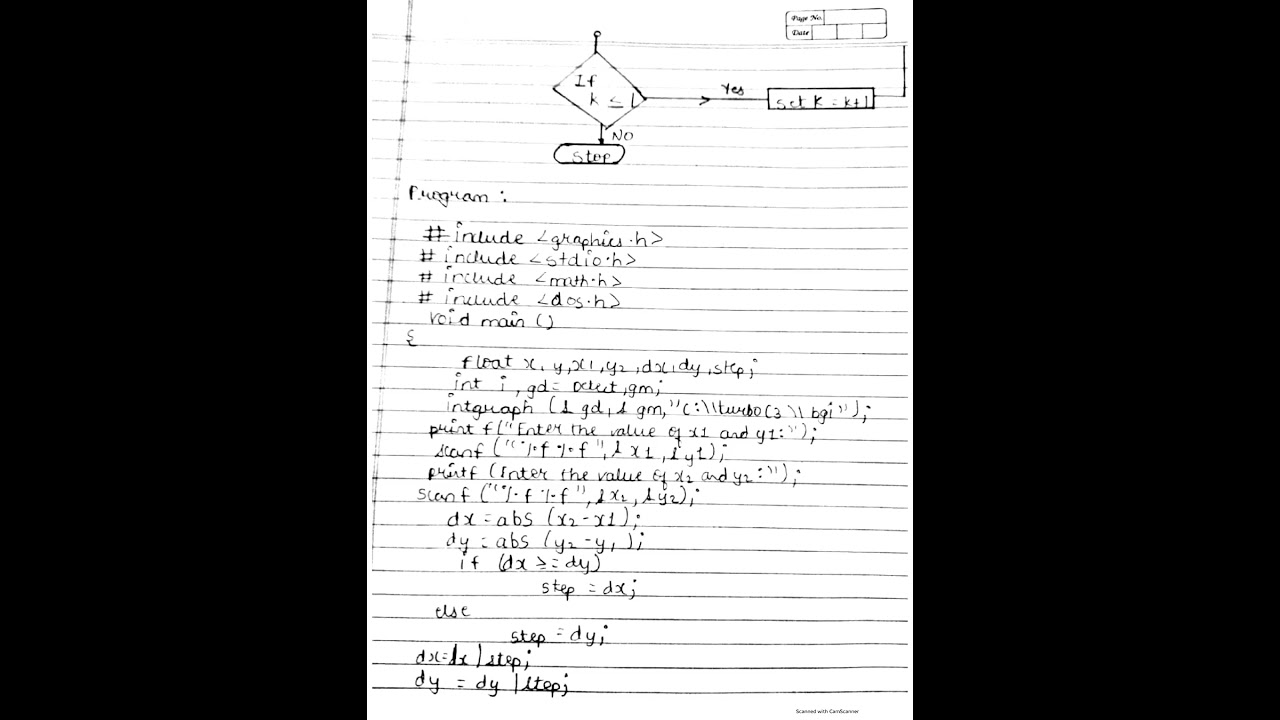 Page No.
Date
If
k ≤ 1
Yes
set k = k+1
NO
Stop
Program :
# include <graphics.h>
# include <stdio.h>
# include <math.h>
# include <dos.h>
void main ()
{
float x, y, x1, y2, dx, dy, step;
int i, gd = Detect, gm;
intgraph (& gd, & gm, "C:\\turboC3\\bgi");
print f("Enter the value of x1 and y1:");
scanf ("%f %f", & x1, & y1);
printf (Enter the value of x2 and y2 :");
scanf ("%f %f", & x2, & y2);
dx = abs (x2-x1);
dy = abs (y2-y1);
if (dx >= dy)
step = dx;
else
step = dy;
dx = dx / step;
dy = dy / step;
Scanned with CamScanner